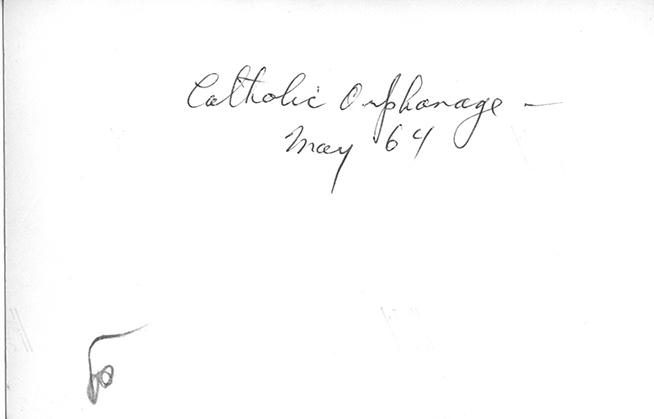 Catholic Orphanage –
May 64